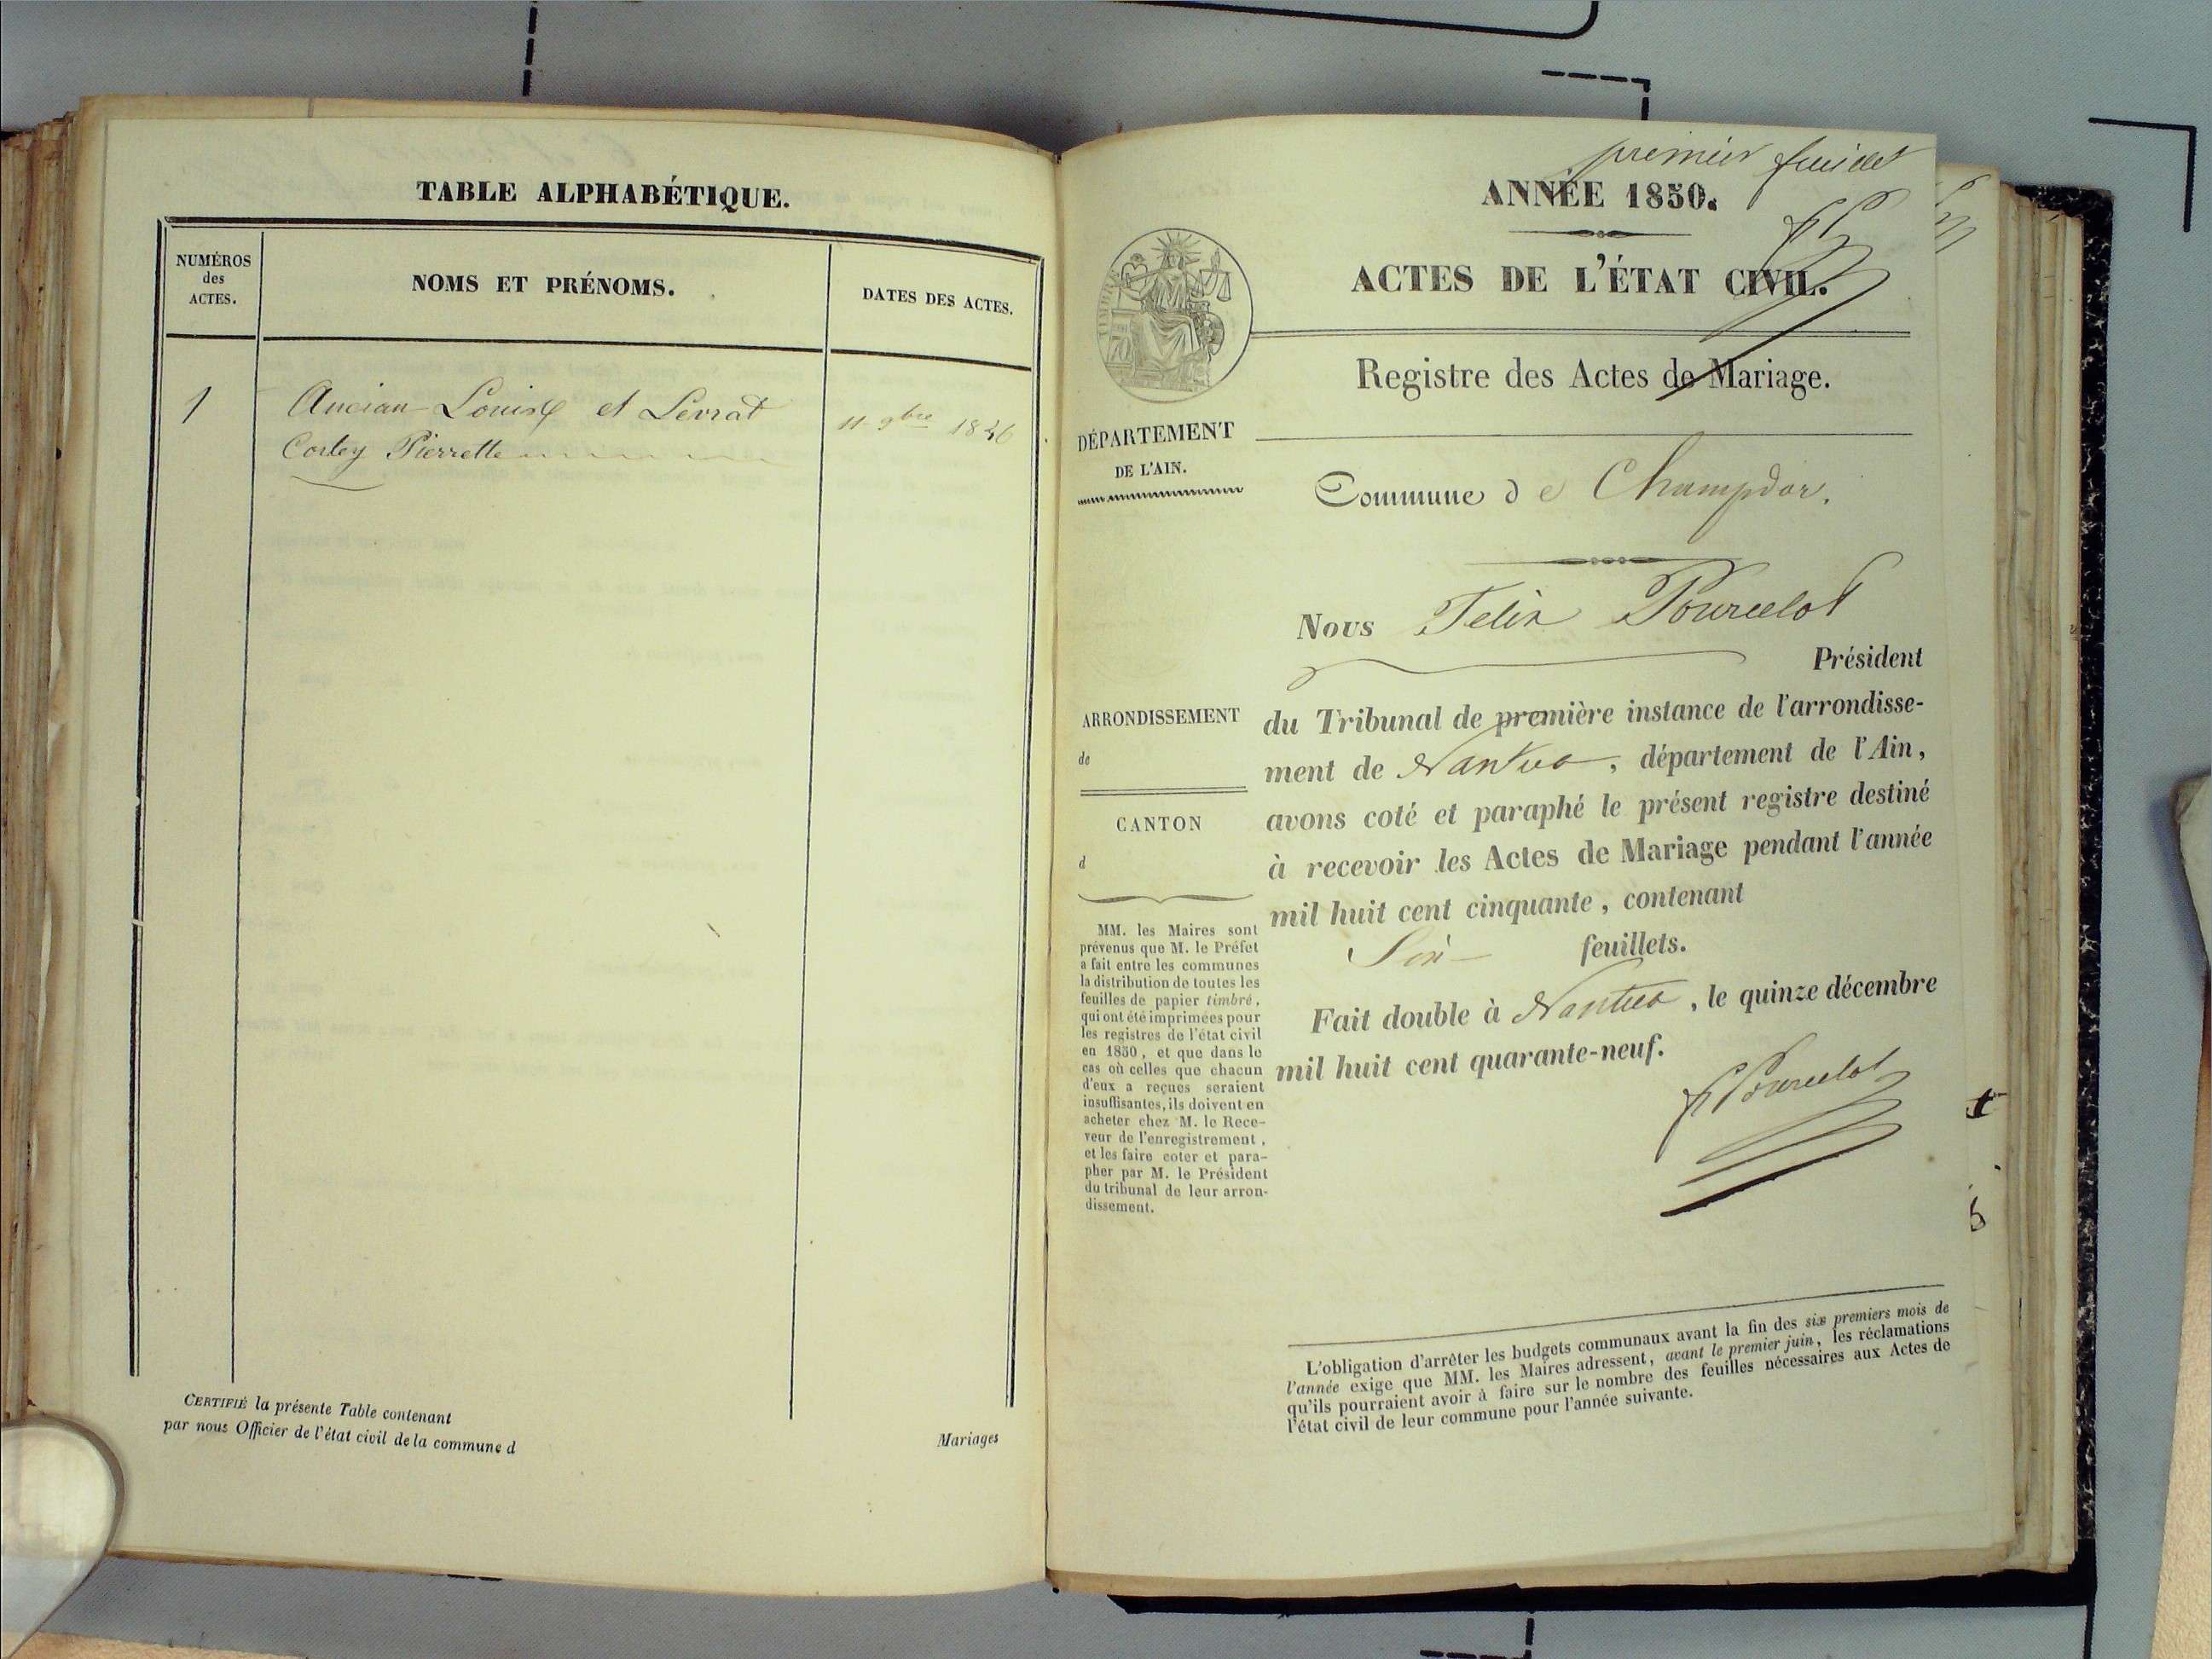 TABLE ALPHABÉTIQUE.
NUMÉROS
des
ACTES.
NOMS ET PRÉNOMS.
DATES DES ACTES.
1
Ancian Louis et Levrat
11 9bre 1846
Corley Pierrette
CERTIFIÉ la présente Table contenant
par nous Officier de l'état civil de la commune d
Mariages
premier feuillet
ANNÉE 1850.
ACTES DE L'ÉTAT CIVIL.
Registre des Actes de Mariage.
DÉPARTEMENT
DE L'AIN.
Commune de Champdor.
Nous Felix Pourcelot
Président
ARRONDISSEMENT
de
CANTON
d
du Tribunal de première instance de l'arrondisse-
ment de Nantua, département de l'Ain,
avons coté et paraphé le présent registre destiné
à recevoir les Actes de Mariage pendant l'année
mil huit cent cinquante, contenant
Six feuillets.
Fait double à Nantua, le quinze décembre
mil huit cent quarante-neuf.
F Pourcelot
MM. les Maires sont
prévenus que M. le Préfet
a fait entre les communes
la distribution de toutes les
feuilles de papier timbré,
qui ont été imprimées pour
les registres de l'état civil
en 1850, et que dans le
cas où celles que chacun
d'eux a reçues seraient
insuffisantes, ils doivent en
acheter chez M. le Rece-
veur de l'enregistrement,
et les faire coter et para-
pher par M. le Président
du tribunal de leur arron-
dissement.
L'obligation d'arrêter les budgets communaux avant la fin des six premiers mois de
l'année exige que MM. les Maires adressent, avant le premier juin, les réclamations
qu'ils pourraient avoir à faire sur le nombre des feuilles nécessaires aux Actes de
l'état civil de leur commune pour l'année suivante.